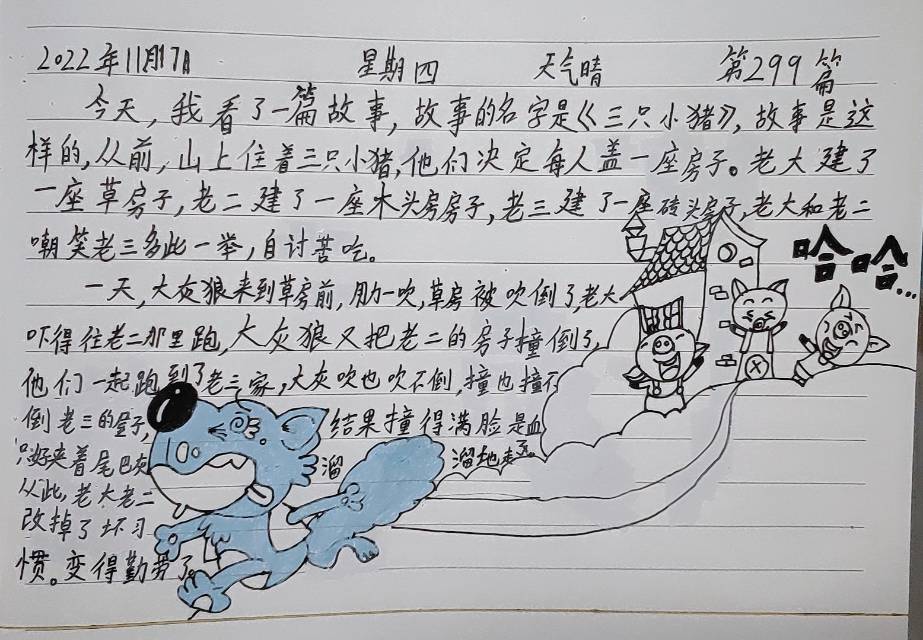 2022年11月17日 星期四 天气晴 第299篇
今天,我看了一篇故事,故事的名字是《三只小猪》,故事是这
样的,从前,山上住着三只小猪,他们决定每人盖一座房子。老大建了
一座草房子,老二建了一座木头房房子,老三建了一座砖头房子,老大和老二
嘲笑老三多此一举,自讨苦吃。
哈哈...
一天,大灰狼来到草房前,用力一吹,草房被吹倒了,老大
吓得往老二那里跑,大灰狼又把老二的房子撞倒了,
他们一起跑到了老三家,大灰吹也吹不倒,撞也撞不
倒老三的屋子,结果撞得满脸是血
只好夹着尾巴灰溜溜地走了。
从此,老大老二
改掉了坏习
惯。变得勤劳了。